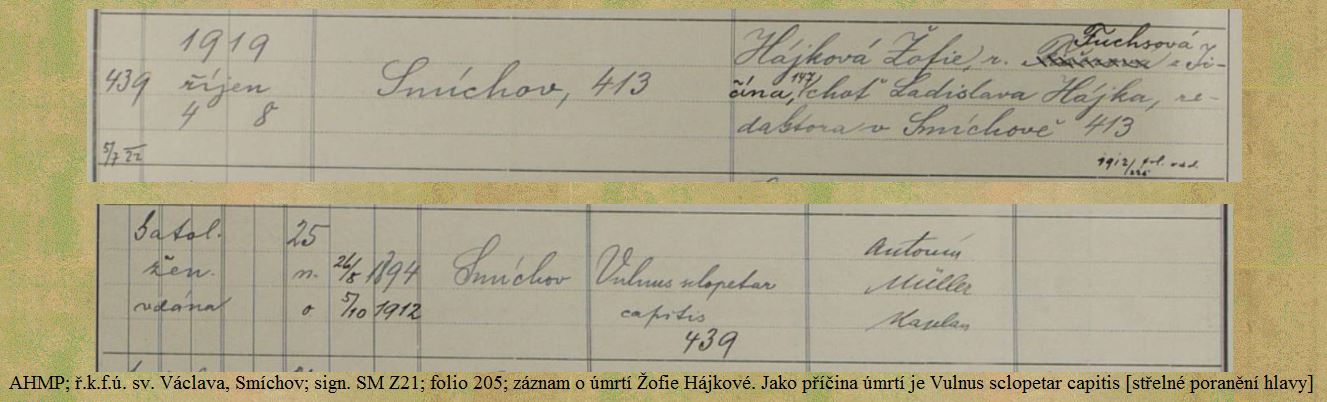 1919
439 říjen
4 8
5/7 22
Smíchov, 413
Hájková Žofie, r. Fuchsová z Ji-
čína, 147/ choť Ladislava Hájka, re-
daktora v Smíchově 413
1912/
katol.
žen.
vdána
25
n.
o
26/8 1894
5/10 1912
Smíchov
Vulnus sclopetar
capitis
439
Antonín
Müller
Kaplan
AHMP; ř.k.f.ú. sv. Václava, Smíchov; sign. SM Z21; folio 205; záznam o úmrtí Žofie Hájkové. Jako příčina úmrtí je Vulnus sclopetar capitis [střelné poranění hlavy]